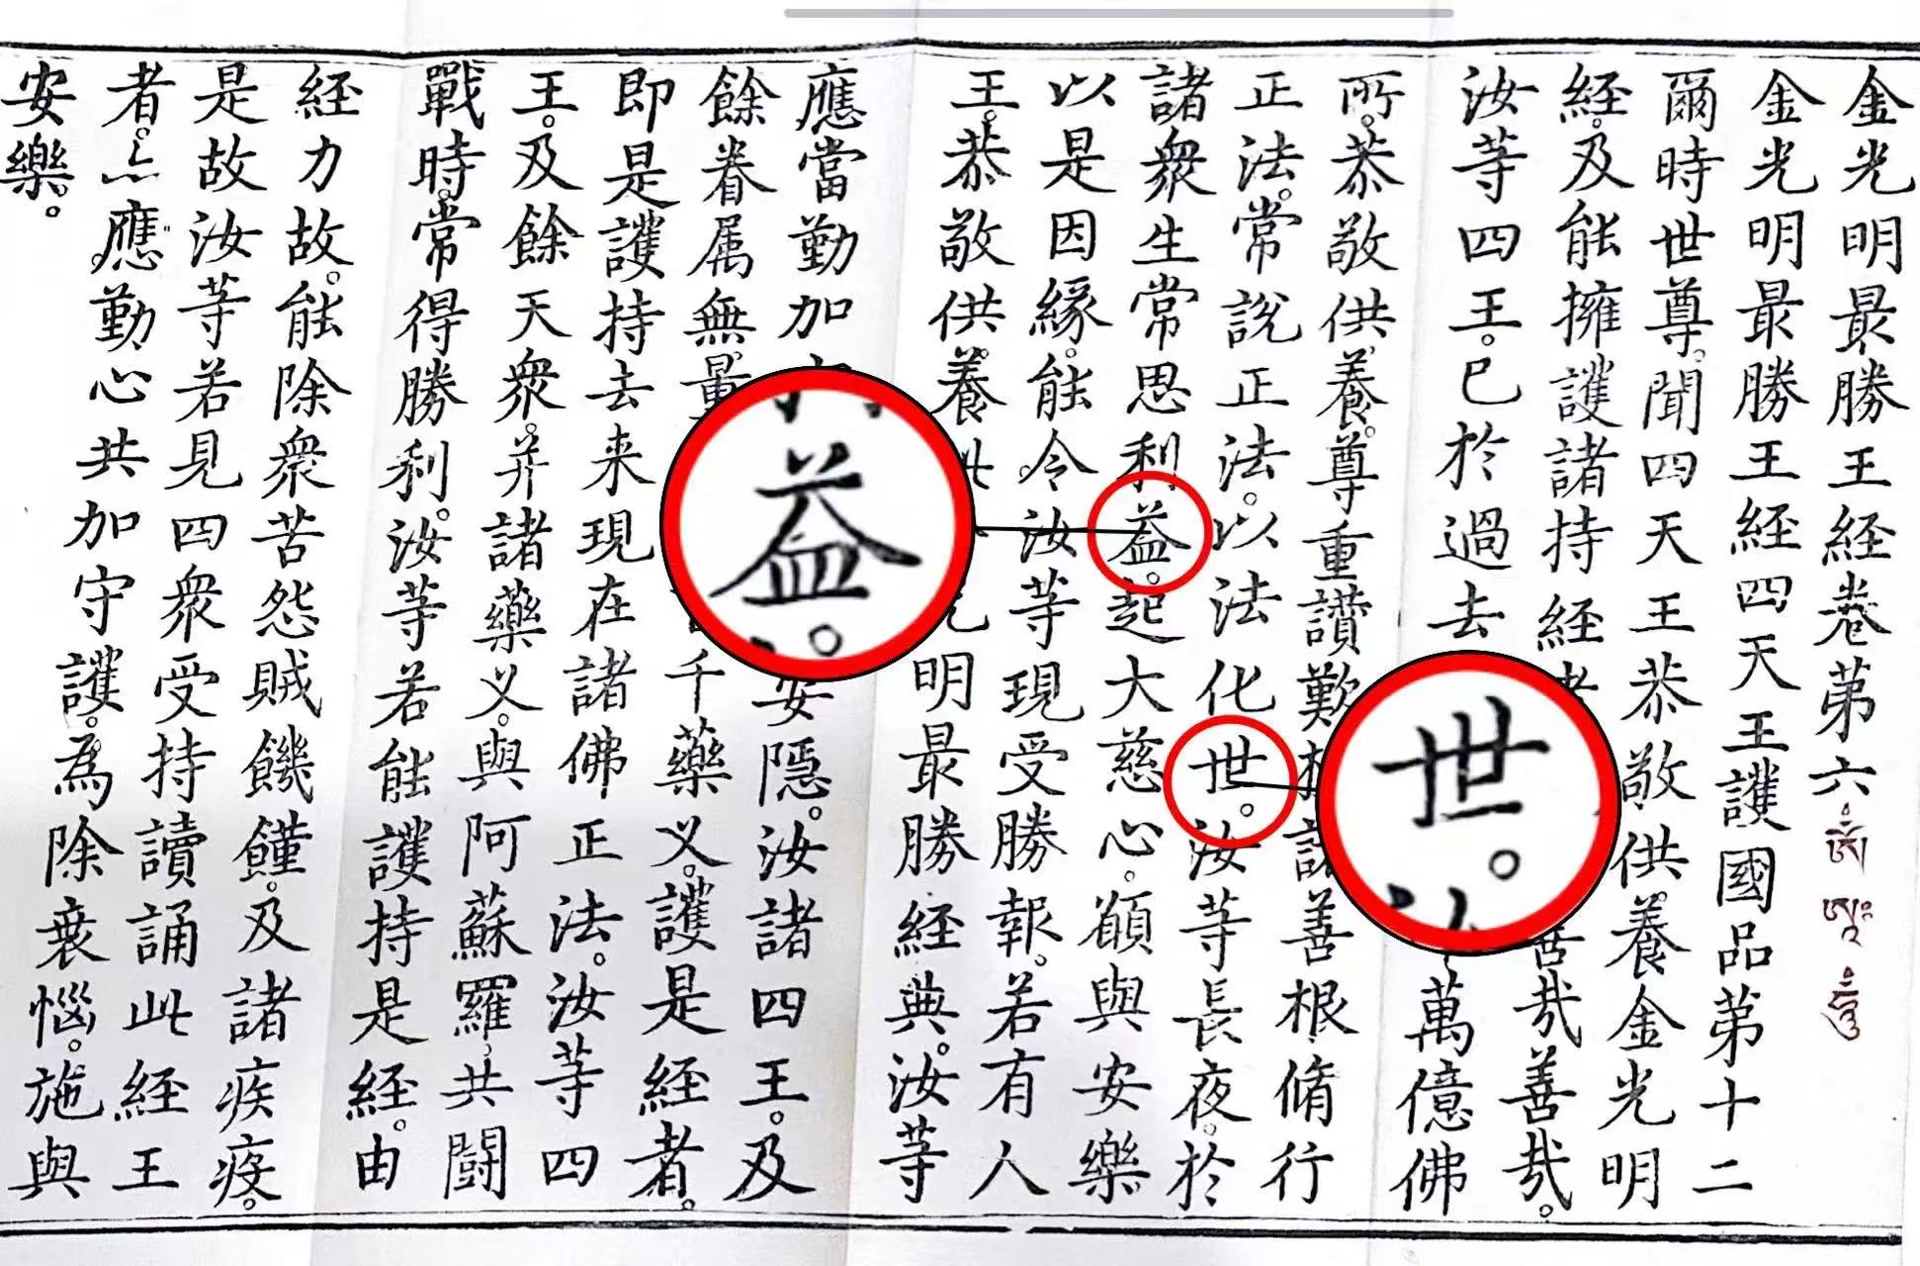 金光明最勝王経卷第六 ༀ ཨཱཿ ཧཱུྃ
金光明最勝王経四天王護國品第十二
爾時世尊。聞四天王恭敬供養金光明
経。及能擁護諸持経者善哉善哉。
汝等四王。已於過去萬億佛
所。恭敬供養。尊重讚歎植諸善根脩行
正法。常說正法。以法化世。汝等長夜。於
諸衆生常思利益。起大慈心。願與安樂
以是因緣。能令汝等現受勝報。若有人
王。恭敬供養明最勝経典。汝等
應當勤加安隱。汝諸四王。及
餘眷属無量千藥叉。護是経者。
即是護持去来現在諸佛正法。汝等四
王。及餘天衆。并諸藥叉。與阿蘇羅共鬪
戰時。常得勝利。汝等若能護持是経。由
経力故。能除衆苦怨賊饑饉。及諸疾疫。
是故汝等若見四衆受持讀誦此経王
者。亦應勤心共加守護。為除衰惱。施與
安樂。
世。
益。